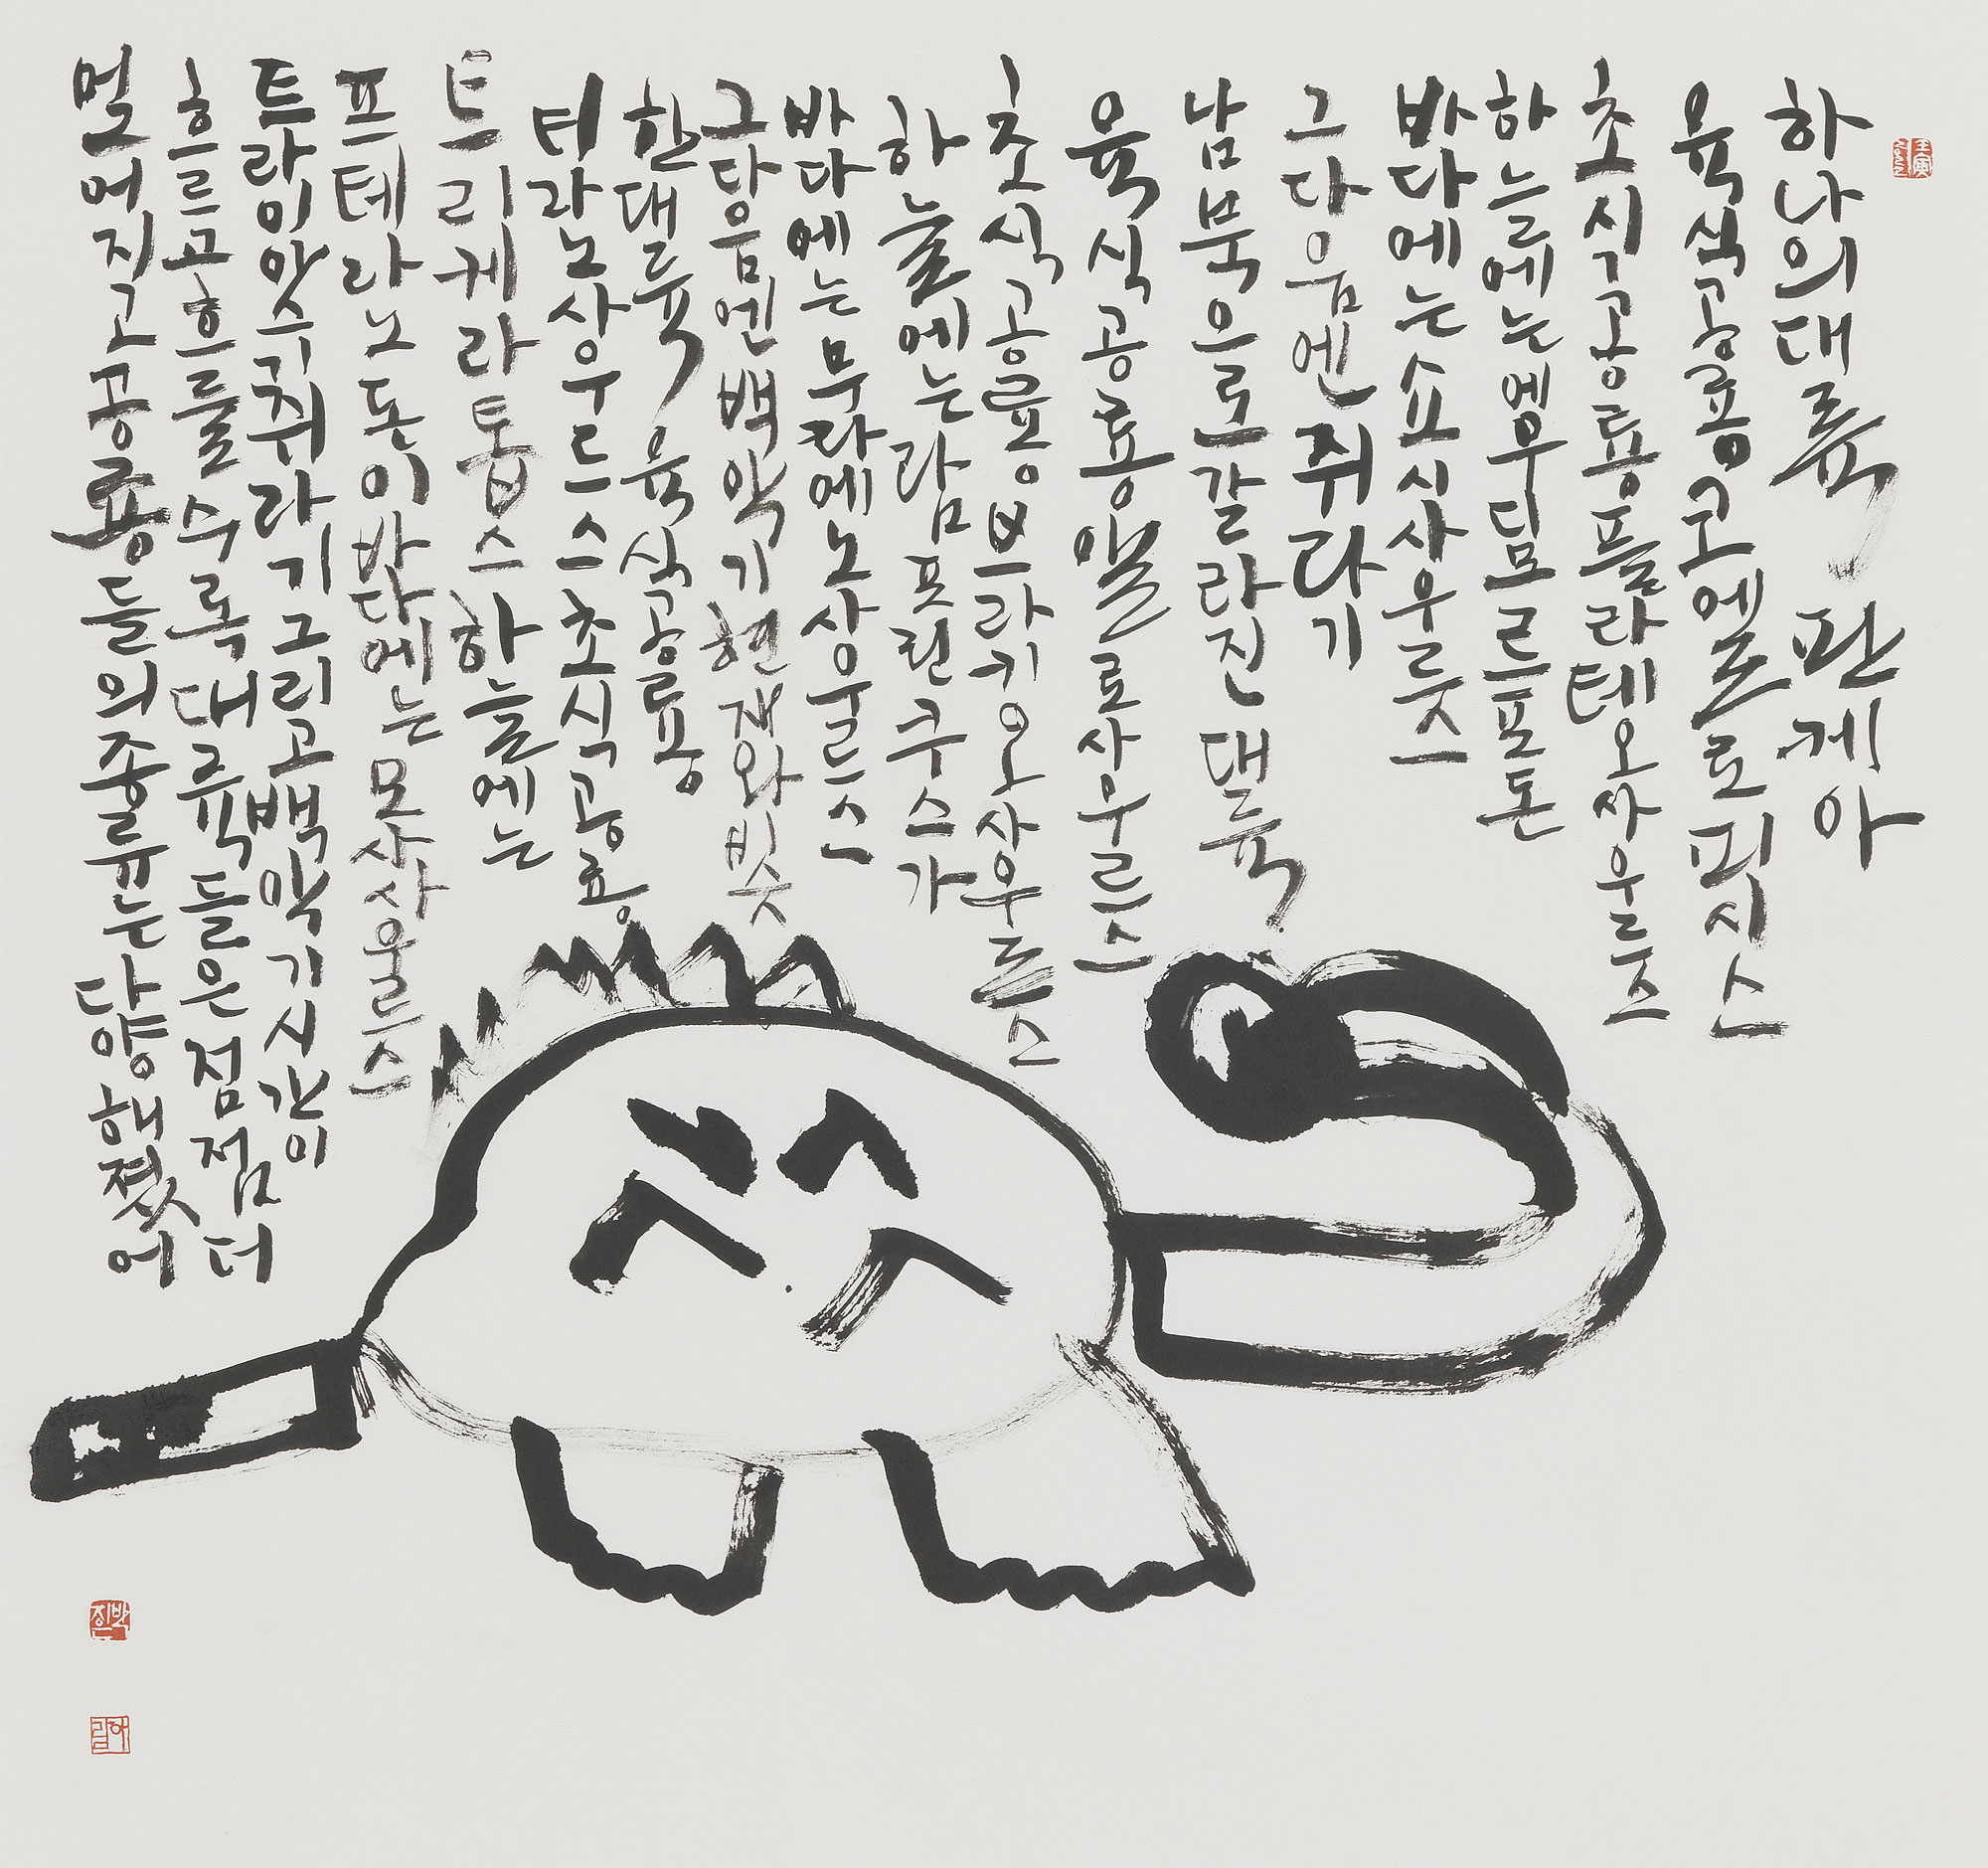 하나의대륙, 판게아
육식공룡코엘로피시스
초식공룡플라테오사우르스
하늘에는에우디모르포돈
바다에는쇼시사우르스
그다음엔쥐라기
남북으로갈라진대륙
육식공룡알로사우르스
초식공룡브라키오사우르스
하늘에는람포린쿠스가
바다에는무라에노사우르스
그다음엔백악기현재와비슷
한대륙, 육식공룡
티라노사우르스초식공룡
트리케라톱스하늘에는
프테라노돈이바다에는모사사우르스
트라이아스기쥐라기그리고백악기시간이
흐르고흐를수록대륙들은점점더
멀어지고공룡들의종류는다양해졌어